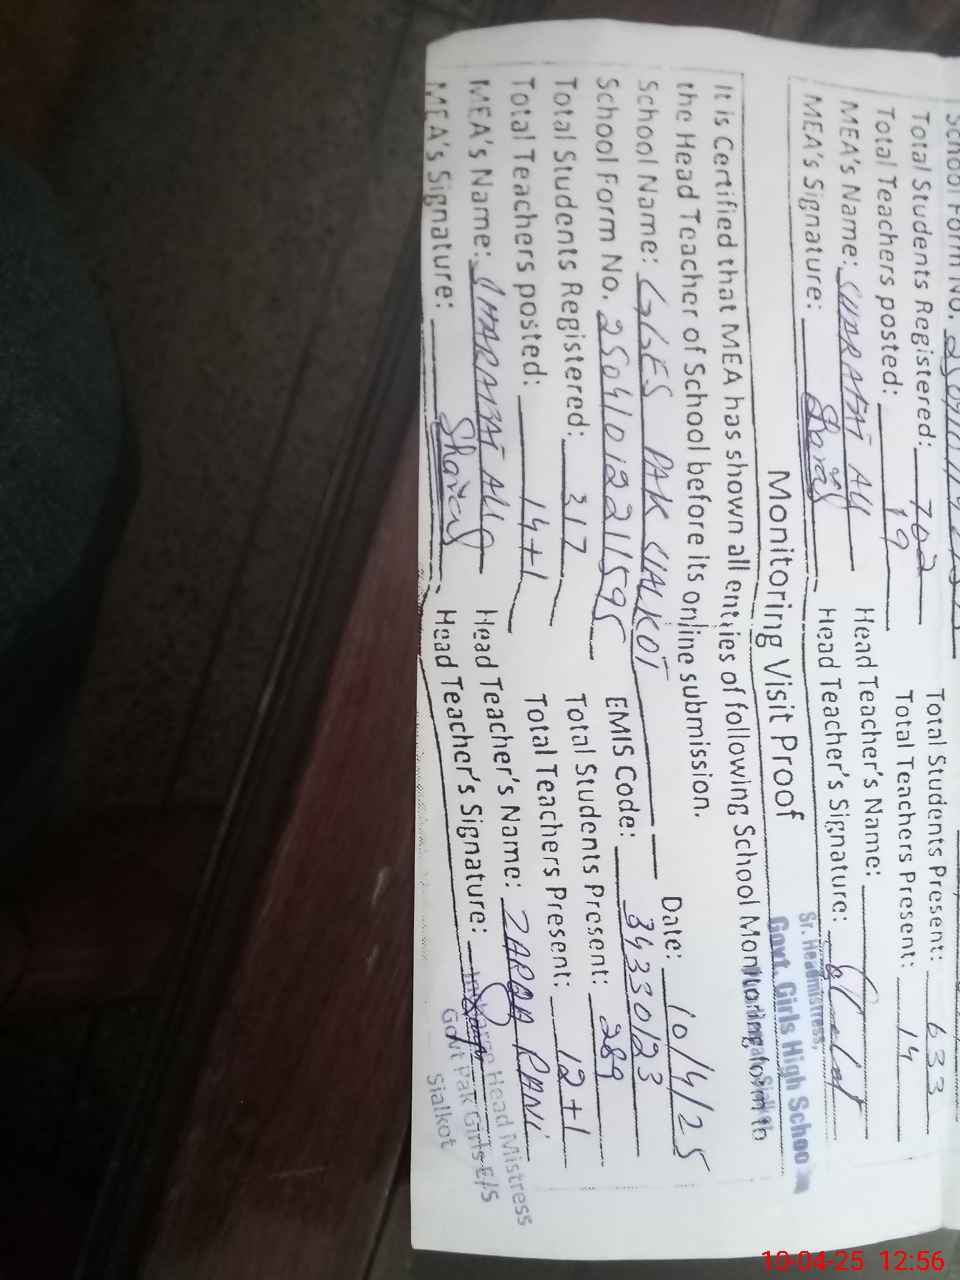 School Form No.
Total Students Registered: 762 Total Students Present: 633
Total Teachers posted: 19 Total Teachers Present: 14
MEA's Name: SHARAFAT ALI Head Teacher's Name:
MEA's Signature: Head Teacher's Signature:
Sr. Headmistress,
Govt. Girls High Schoo
Monitoring Visit Proof
It is Certified that MEA has shown all entries of following School Monitoring form to
the Head Teacher of School before its online submission.
Date: 10/4/25
School Name: GGES PAK SIALKOT
School Form No. 25041012211595 EMIS Code: 34330123
Total Students Registered: 317 Total Students Present: 289
Total Teachers posted: 14+1 Total Teachers Present: 12+1
MEA's Name: SHARAFAT ALI Head Teacher's Name: ZARQA RANI
MEA's Signature: Head Teacher's Signature:
Head Mistress
Govt Pak Girls E/S
Sialkot
10-04-25 12:56